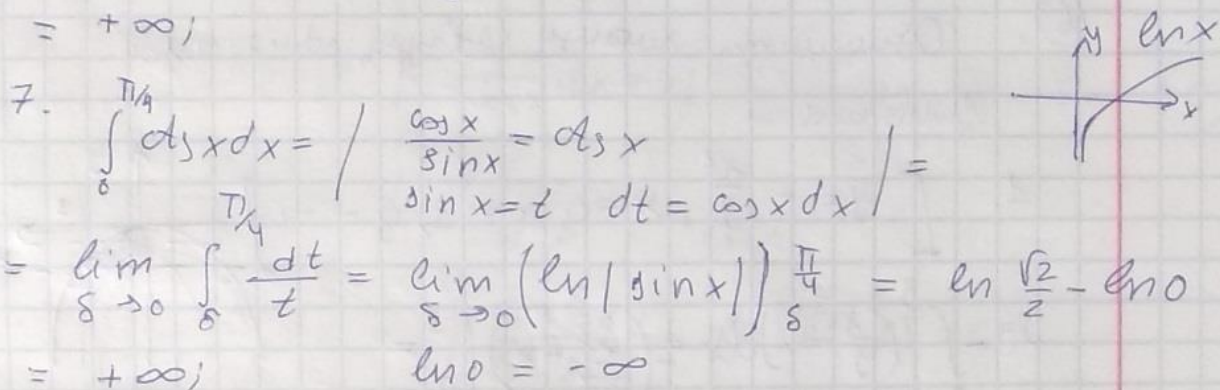 = +∞;
y ln x
x
7. ∫₀^{π/4} ctg x dx = | cos x / sin x = ctg x
sin x = t dt = cos x dx | =
= lim_{δ→0} ∫_δ^{π/4} dt/t = lim_{δ→0} (ln |sin x|) _δ^{π/4} = ln √2/2 - ln 0
= +∞; ln 0 = -∞